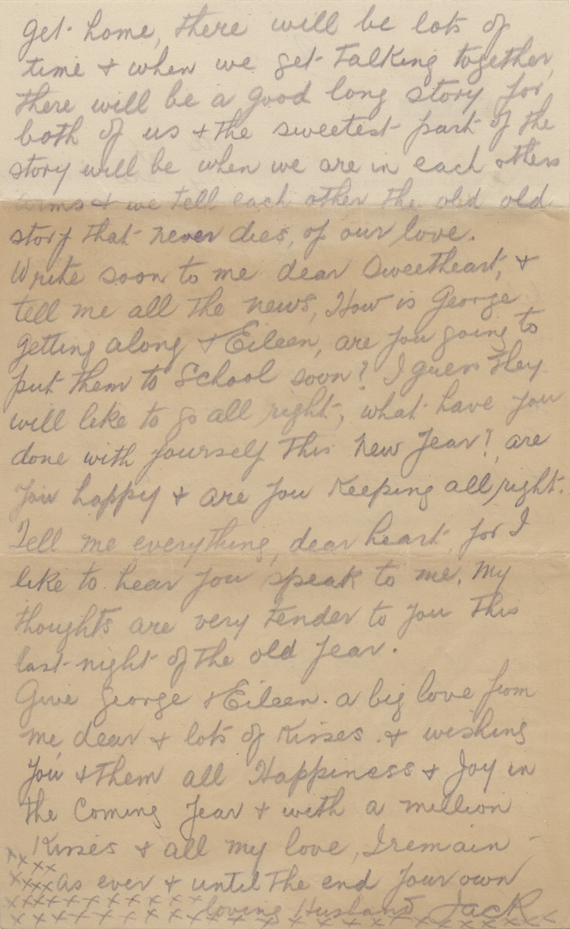 get home, there will be lots of
time & when we get talking together,
there will be a good long story for
both of us & the sweetest part of the
story will be when we are in each others
arms & we tell each other the old old
story that never dies, of our love.
Write soon to me dear Sweetheart, &
tell me all the news, How is George
getting along & Eileen, are you going to
put them to School soon? I guess they
will like to go all right, what have you
done with yourself this New Year? are
you happy & are you keeping all right.
Tell me everything, dear heart for I
like to hear you speak to me. My
thoughts are very tender to you this
last night of the old year.
Give George & Eileen. a big love from
me dear & lots of Kisses. & wishing
you & them all Happiness & Joy in
the Coming Year & with a million
Kisses & all my love, I remain
as ever & until the end your own
loving Husband Jack